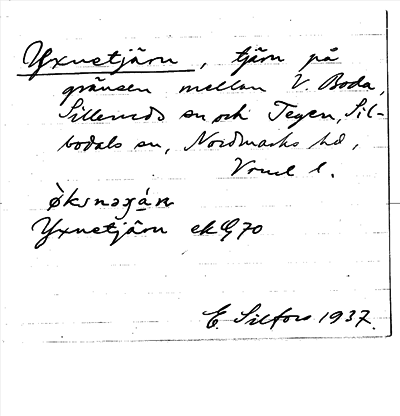 Yxnetjärn, tjärn på
gränsen mellan V. Boda,
Silleruds sn och Tegen, Sil-
bodals sn, Nordmarks hd,
Vrml l.
Yxnetjärn ek 70
E. Silfors 1937.